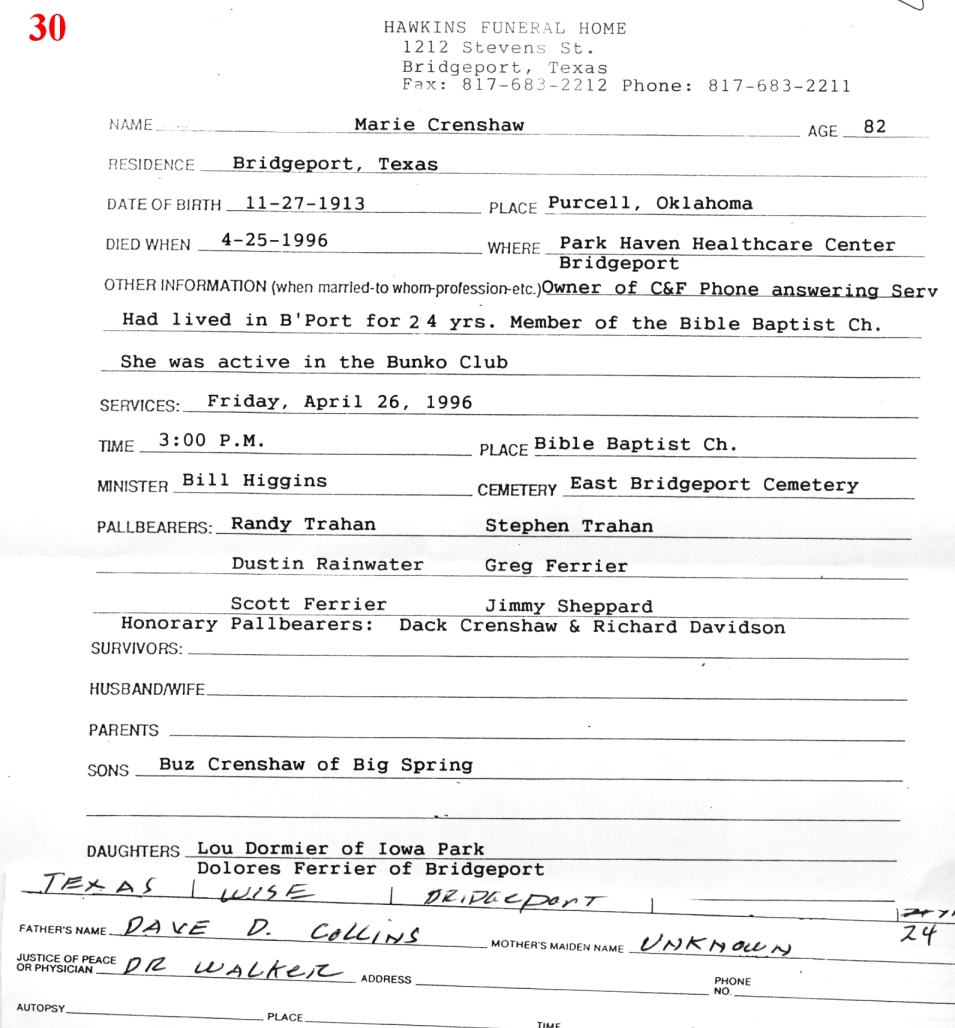 30
HAWKINS FUNERAL HOME
1212 Stevens St.
Bridgeport, Texas
Fax: 817-683-2212 Phone: 817-683-2211
NAME Marie Crenshaw AGE 82
RESIDENCE Bridgeport, Texas
DATE OF BIRTH 11-27-1913 PLACE Purcell, Oklahoma
DIED WHEN 4-25-1996 WHERE Park Haven Healthcare Center
Bridgeport
OTHER INFORMATION (when married-to whom-profession-etc.) Owner of C&F Phone answering Serv
Had lived in B'Port for 24 yrs. Member of the Bible Baptist Ch.
She was active in the Bunko Club
SERVICES: Friday, April 26, 1996
TIME 3:00 P.M. PLACE Bible Baptist Ch.
MINISTER Bill Higgins CEMETERY East Bridgeport Cemetery
PALLBEARERS: Randy Trahan Stephen Trahan
Dustin Rainwater Greg Ferrier
Scott Ferrier Jimmy Sheppard
Honorary Pallbearers: Dack Crenshaw & Richard Davidson
SURVIVORS:
HUSBAND/WIFE
PARENTS
SONS Buz Crenshaw of Big Spring
DAUGHTERS Lou Dormier of Iowa Park
Dolores Ferrier of Bridgeport
TEXAS WISE BRIDGEPORT
24
FATHER'S NAME DAVE D. COLLINS MOTHER'S MAIDEN NAME UNKNOWN
JUSTICE OF PEACE
OR PHYSICIAN DR WALKER ADDRESS PHONE
NO.
AUTOPSY PLACE TIME